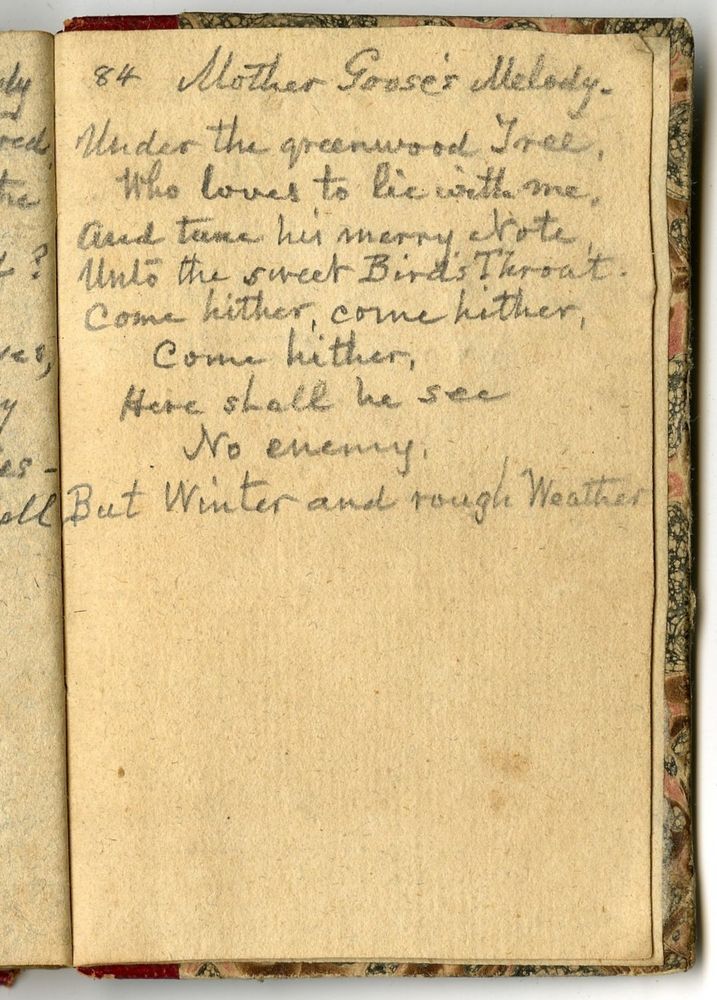 84 Mother Goose's Melody.
Under the greenwood Tree,
Who loves to lie with me,
And tune his merry Note,
Unto the sweet Bird's Throat.
Come hither, come hither,
Come hither,
Here shall he see
No enemy,
But Winter and rough Weather